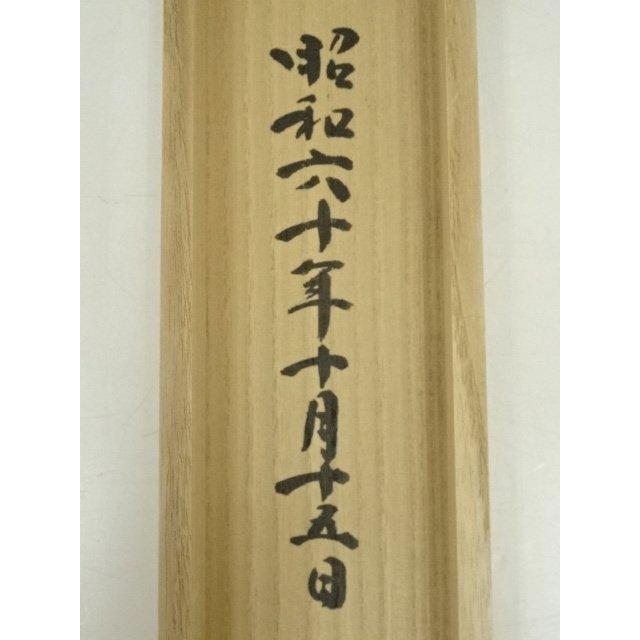 昭和六十年十月十五日